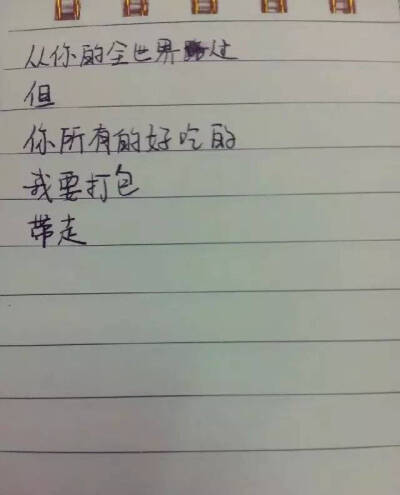 从你的全世界路过
但
你所有的好吃的
我要打包
带走